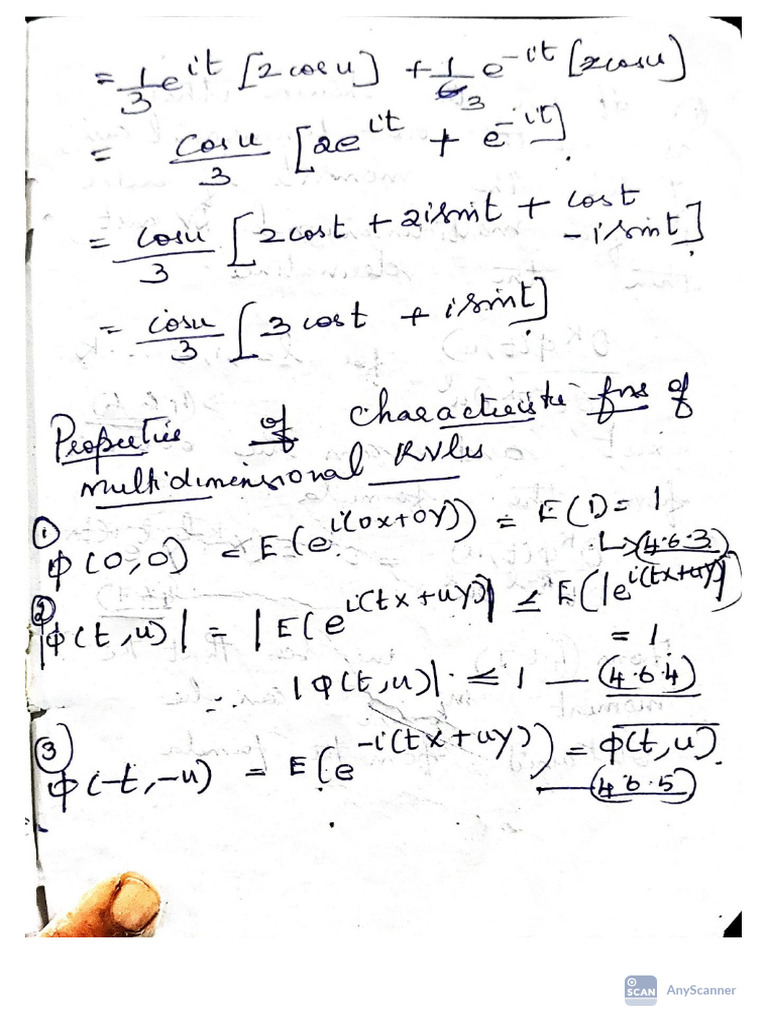 = 1/3 e^{it} [2 cos u] + 1/3 e^{-it} [2cosu]
= cos u/3 [2e^{it} + e^{-it}].
= cosu/3 [2cost + 2isint + cost
- isint].
= cosu/3 [3 cost + isint].
Properties of characteristic fns of
multidimensional RVles
① φ(0,0) = E(e^{i(0x+0y)}) = E(1) = 1
↳ (4.6.3)
② |φ(t,u)| = |E(e^{i(tx+uy)}| ≤ E(|e^{i(tx+uy)}|)
= 1
∴ |φ(t,u)| ≤ 1 — (4.6.4)
③ φ(-t,-u) = E(e^{-i(tx+uy)}) = \overline{φ(t,u)}.
— (4.6.5)
SCAN AnyScanner